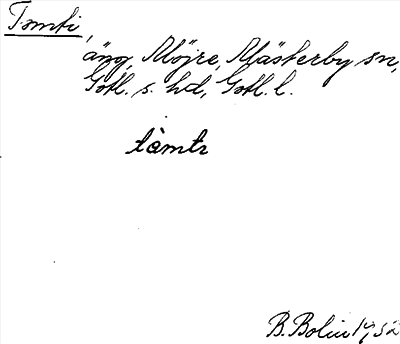 Tomti,
äng, Möjre, Mästerby sn,
Gotl. s. hd, Gotl. l.
tàmtı
B. Bolin 1932